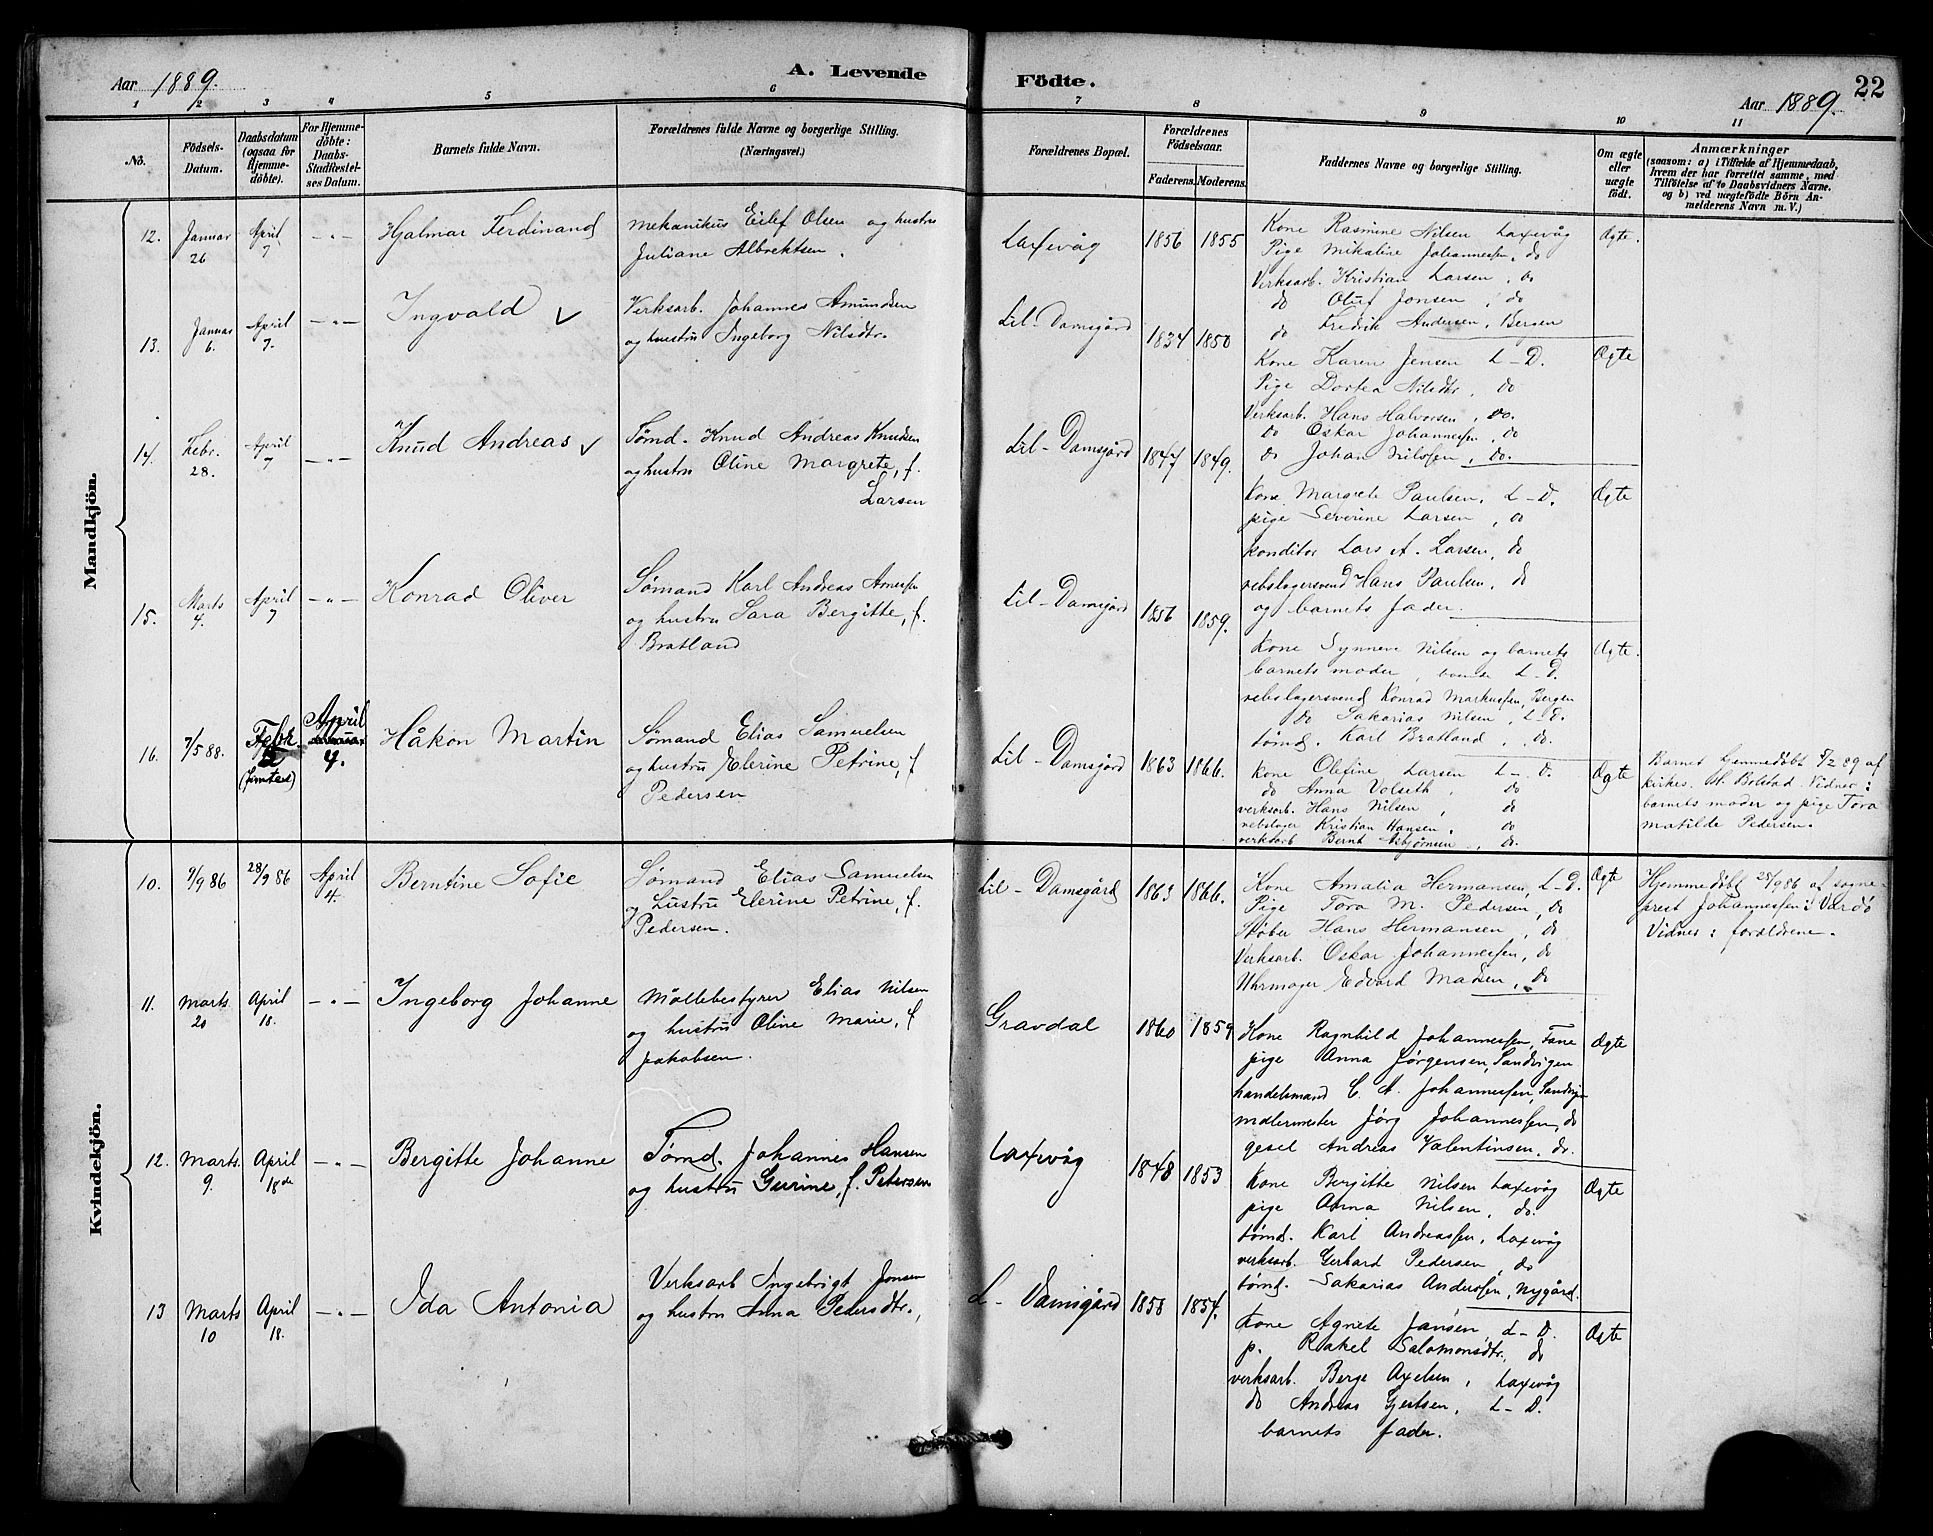 Aar 1889.
A. Levende
Födte.
Aar 1889.
22
1 2 3 4 5 6 7 8 9 10 11
No.
Födsels-
Datum.
Daabsdatum
(ogsaa for
Hjemme-
döbte).
For Hjemme-
döbte:
Daabs-
Stadfæstel-
ses Datum.
Barnets fulde Navn.
Forældrenes fulde Navne og borgerlige Stilling.
(Næringsvei.)
Forældrenes Bopæl.
Forældrenes
Födselsaar.
Faderens. Moderens.
Faddernes Navne og borgerlige Stilling.
Om ægte
eller
uægte
født.
Anmærkninger
(saasom: a) i Tilfælde af Hjemmedaab,
hvem der har forrettet samme, med
Tilföielse af to Daabsvidners Navne.
og b) ved uægtefödte Börn An-
melderens Navn m. V.)
Mandkjön.
12.
Januar
26
April
7
— " —
Hjalmar Ferdinand
Mekanikus Eilef Olsen og hustru
Juliane Albrektsen.
Laxevåg
1856
1855
Kone Rasmine Nilsen Laxevåg
Pige Mikaline Johannessen, do
Verksarb. Kristian Larsen, do
do Oluf Jonsen, do
do Fredrik Andersen, Bergen
Ægte.
13.
Januar
6.
April
7.
— " —
Ingvald
Verksarb. Johannes Amundsen
og hustru Ingeborg Nilsdtr.
Lil-Damsgård
1834
1850
Kone Karen Jensen L-D.
Pige Dortea Nilsdtr, do
Verksarb. Hans Halvorsen, do.
do Oskar Johannessen, do
do Johan Nilssen, do.
Ægte
14.
Febr.
28.
April
7
— " —
Knud Andreas
Tømd. Knud Andreas Knudsen
og hustru Oline Margrete, f.
Larsen
Lil-Damsgård
1847
1849.
Kone Margrete Paulsen, L-D.
pige Severine Larsen, do
konditor Lars A. Larsen, do
rebslagersvend Hans Paulsen, do
og barnets fader.
Ægte
15.
Marts
4.
April
7
— " —
Konrad Oliver
Sømand Karl Andreas Arnessen
og hustru Sara Bergitte, f.
Bratland
Lil-Damsgård
1856
1859.
Kone Synneve Nilsen og barnets
barnets moder, L-D.
rebslagersvend Konrad Markussen, Bergen
do Sakarias Nilsen, L-D.
tømd. Karl Bratland, do.
Ægte.
16.
7/5 88.
Febr.
April
4.
Håkon Martin
Sømand Elias Samuelsen
og hustru Elerine Petrine, f
Pedersen
Lil-Damsgård
1863
1866.
Kone Olefine Larsen L-D.
do Anna Volseth, do
verksarb. Hans Nilsen, do
rebslager Kristian Hansen, do
verksarb Bernt Asbjørnsen, do.
Ægte
Barnet hjemmedøbt 5/2 89 af
kirkes. St. Bolstad. Vidner:
barnets moder og pige Tora
Matilde Pedersen.
Kvindekjön.
10.
9/9 86
28/9 86
April
4.
Berntine Sofie
Sømand Elias Samuelsen
og hustru Elerine Petrine, f.
Pedersen.
Lil-Damsgård
1863
1866.
Kone Amalia Hermansen, L-D.
Pige Tora M. Pedersen, do
Støber Hans Hermansen, do
Verksarb. Oskar Johannessen, do
Uhrmager Edvard Madsen, do
Ægte
Hjemmedøbt 28/9 86 af sogne-
prest Johannessen i Vardø
Vidner: forældrene.
11.
Marts
20
April
18.
— " —
Ingeborg Johanne
Møllebestyrer Elias Nilsen
og hustru Oline Marie, f
Jakobsen.
Gravdal
1860
1859
Kone Ragnhild Johannessen, Fane
pige Anna Jørgensen, Sandvigen
handelsmand C. A. Johannessen, Sandvigen
Malermester Jørg Johannessen, do
gesel Andreas Valentinsen, do.
Ægte
12.
Marts.
9.
April
18de
— " —
Bergitte Johanne
Tømd. Johannes Hansen
og hustru Gurine, f. Petersen
Laxevåg
1848
1853
Kone Bergitte Nilsen Laxevåg
pige Anna Nilsen, do.
tømd. Karl Andreassen, Laxevåg
verksarb. Gerhard Pedersen, do
tømd. Sakarias Anderssen, Nygård.
Ægte
13
Marts
10
April
18.
— " —
Ida Antonia
Verksarb Ingebrigt Jonsen
og hustru Anna Pedersdtr.,
L-Damsgård
1858
1854.
Kone Agnete Jansen, L-D.
p. Rakel Salomonsdtr., do
verksarb. Berge Axelsen, Laxevåg
do Andreas Gjertsen, L-D.
barnets fader.
Ægte